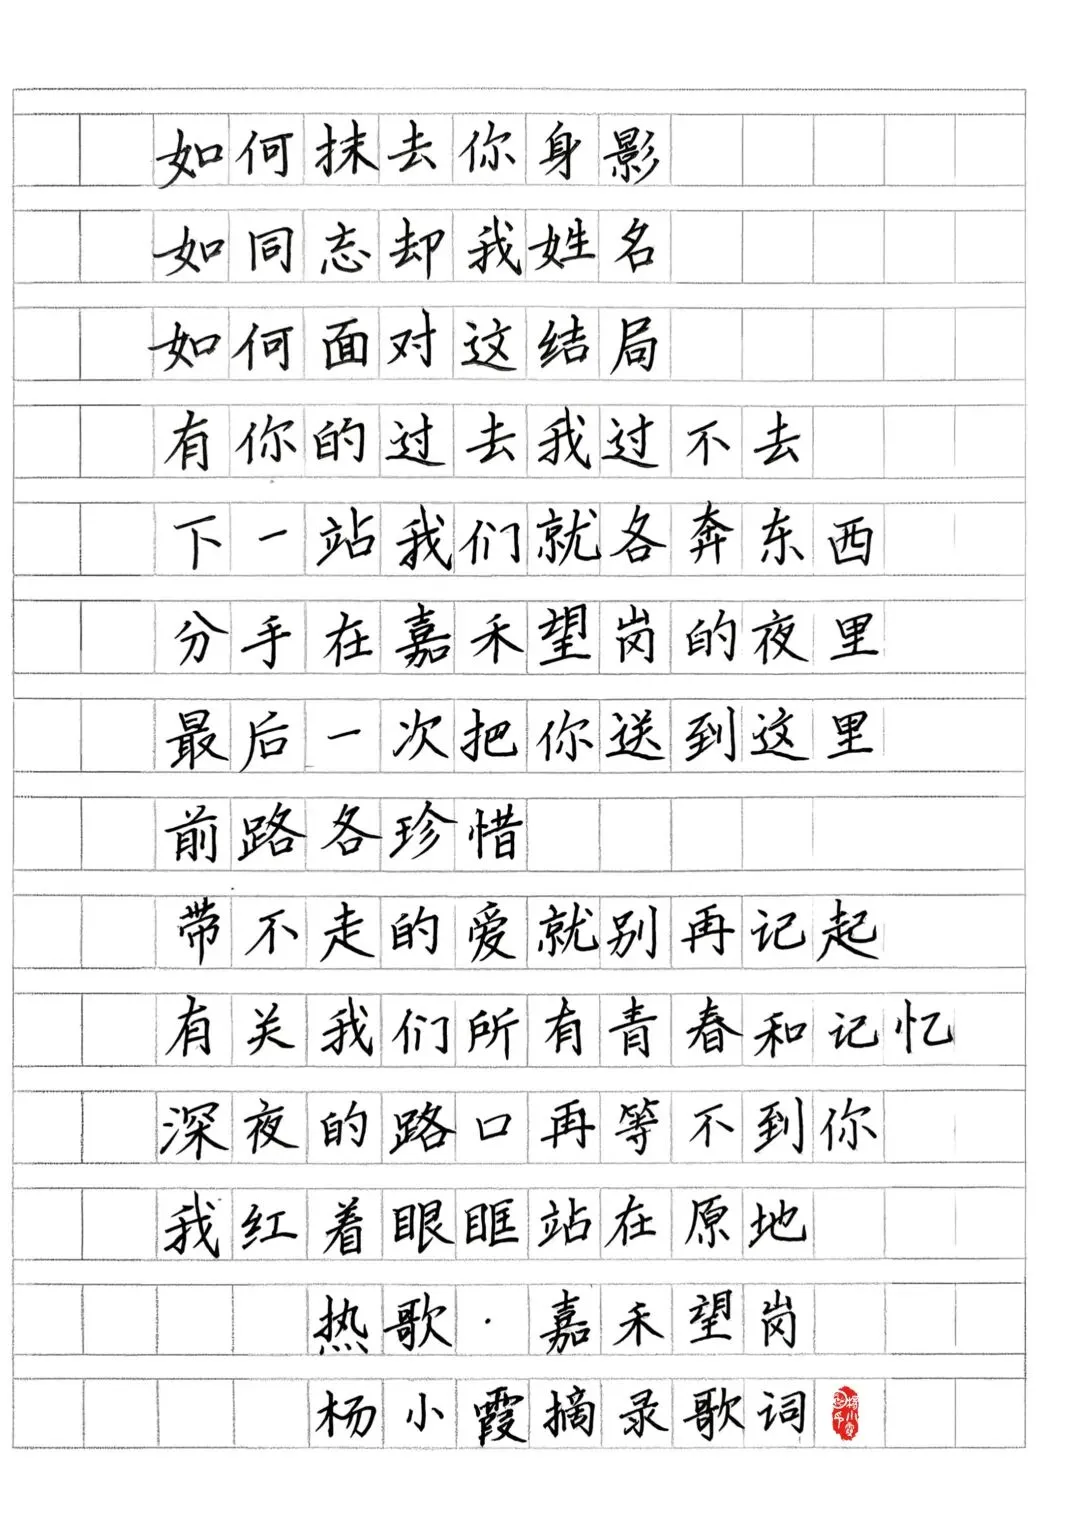 如何抹去你身影
如同忘却我姓名
如何面对这结局
有你的过去我过不去
下一站我们就各奔东西
分手在嘉禾望岗的夜里
最后一次把你送到这里
前路各珍惜
带不走的爱就别再记起
有关我们所有青春和记忆
深夜的路口再等不到你
我红着眼眶站在原地
热歌·嘉禾望岗
杨小霞摘录歌词